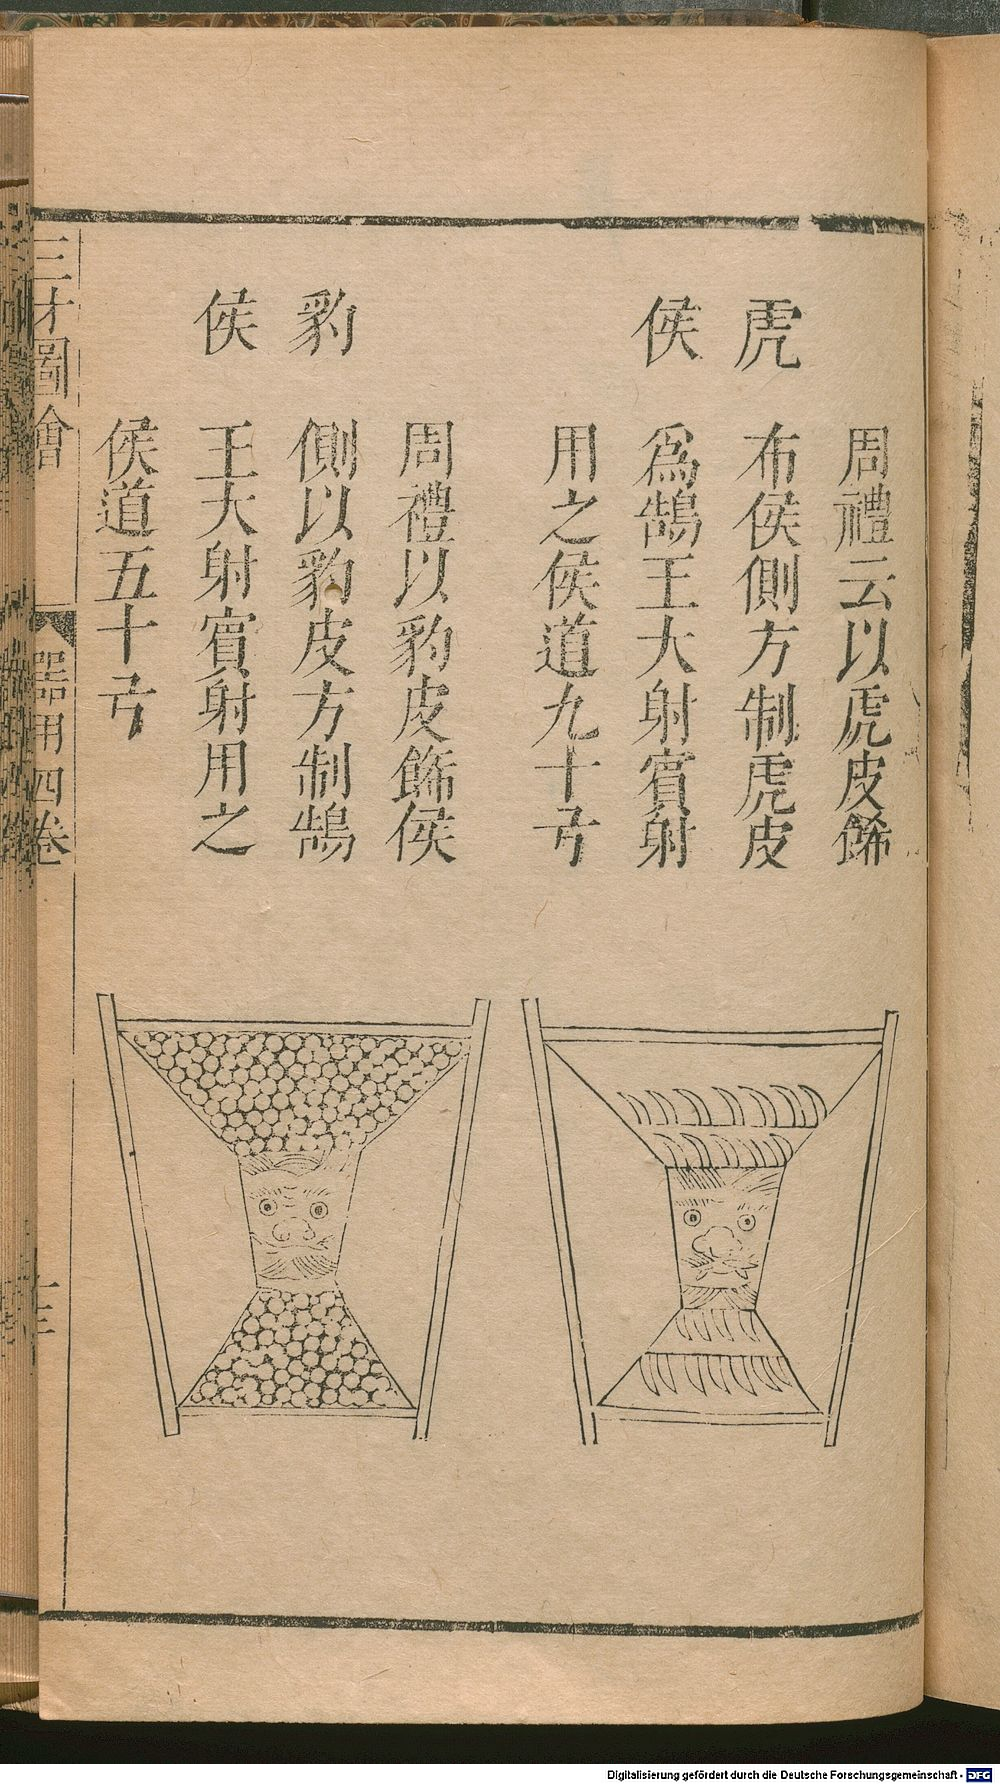 虎侯
周禮云以虎皮餙
布侯側方制虎皮
爲鵠王大射賔射
用之侯道九十弓
豹侯
周禮以豹皮餙侯
側以豹皮方制鵠
王大射賔射用之
侯道五十弓
三才圖會 器用四卷 十三
Digitalisierung gefördert durch die Deutsche Forschungsgemeinschaft - DFG